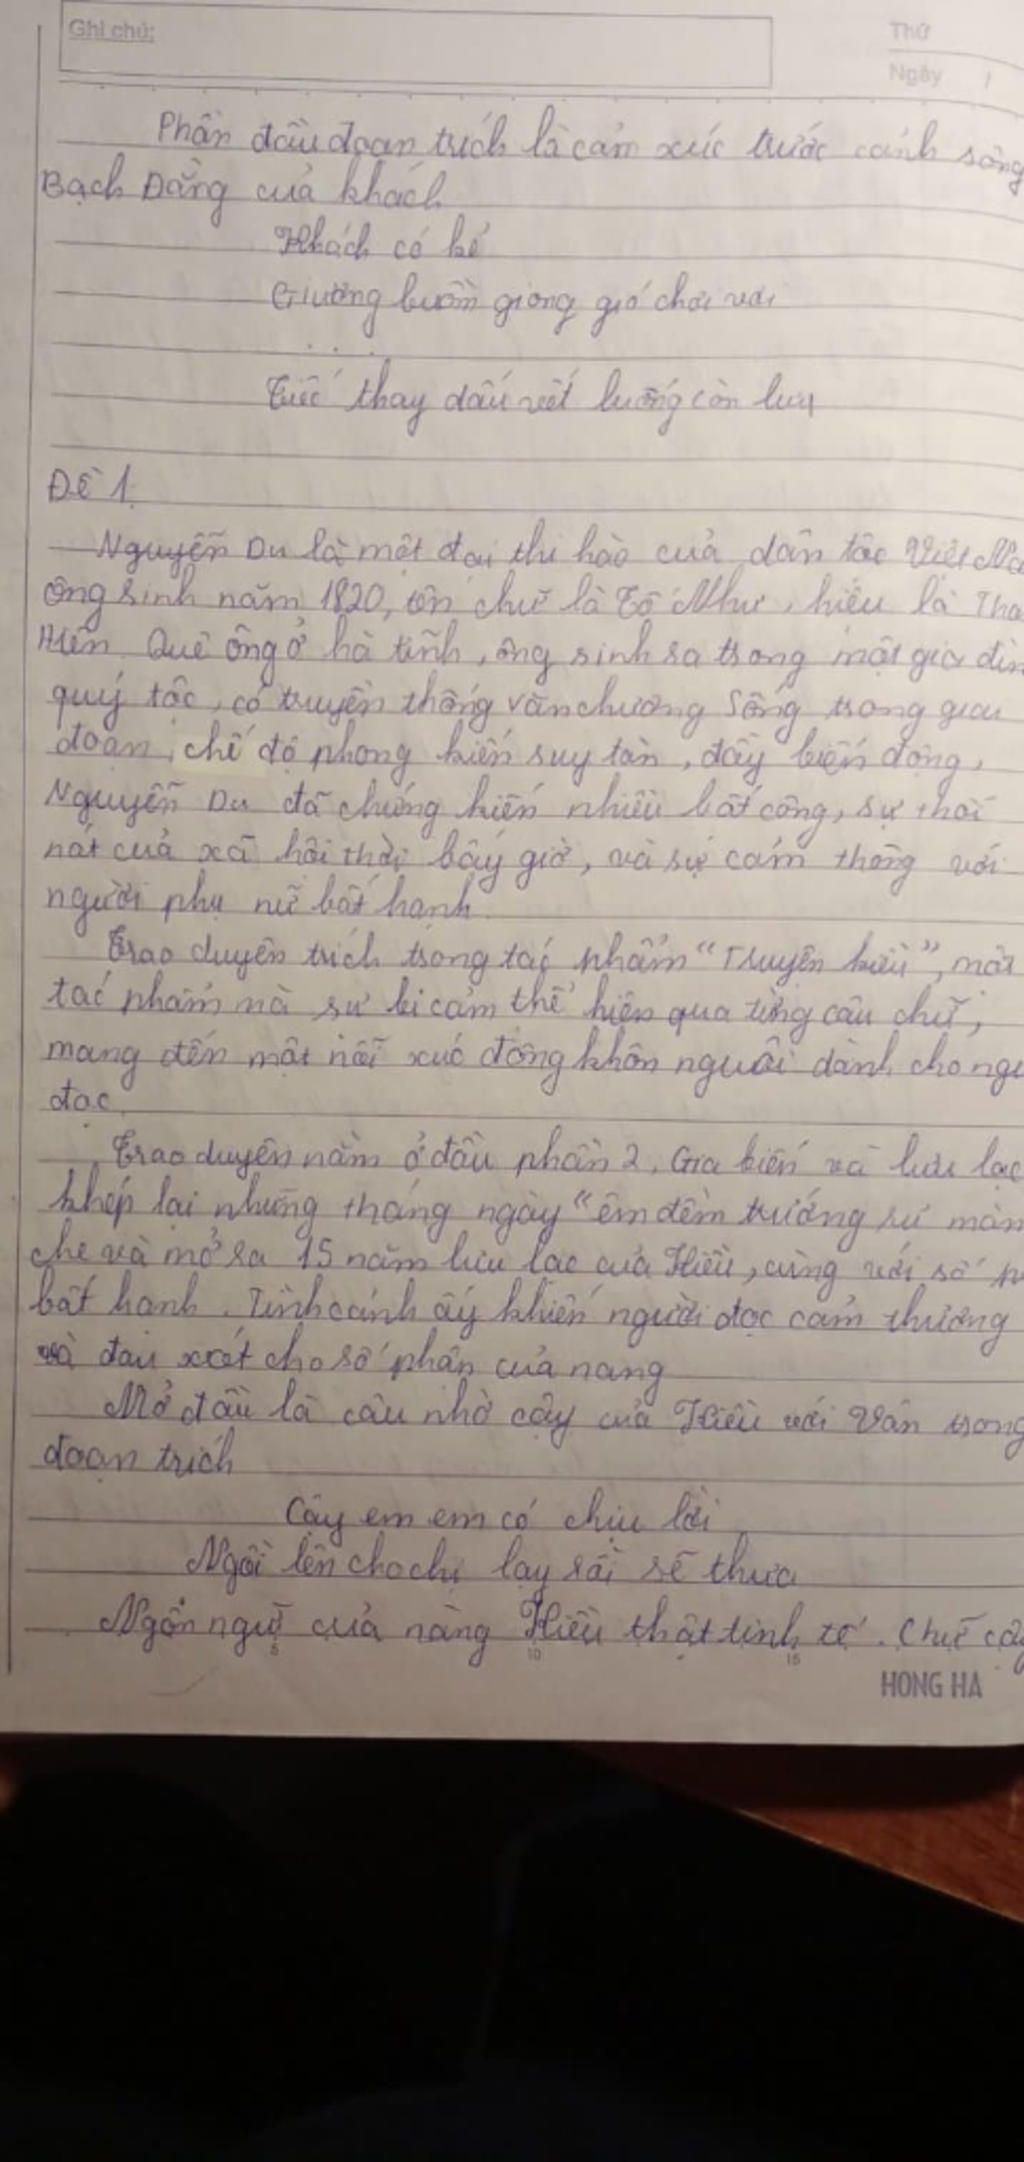 Ghi chú:
Thứ
Ngày /
Phần đầu đoạn trích là cảm xúc trước cảnh sông
Bạch Đằng của khách
Khách có kẻ
Giương buồm giong gió chơi vơi
. . .
Tiếc thay dấu vết luống còn lưu
Đề 1.
Nguyễn Du là một đại thi hào của dân tộc Việt Na
ông sinh năm 1820, tên chữ là Tố Như, hiệu là Tha
Hiên. Quê ông ở hà tĩnh, ông sinh ra trong một gia đìn
quý tộc, có truyền thống văn chương Sống trong giai
đoạn, chế độ phong kiến suy tàn, đầy biến động,
Nguyễn Du đã chứng kiến nhiều bất công, sự thối
nát của xã hội thời bấy giờ, và sự cảm thông với
người phụ nữ bất hạnh.
Trao duyên trích trong tác phẩm "Truyện kiều", một
tác phẩm mà sự bi cảm thể hiện qua từng câu chữ,
mang đến một nỗi xúc động khôn nguôi dành cho ngư
đọc.
Trao duyên nằm ở đầu phần 2, Gia biến và lưu lạc
khép lại những tháng ngày "êm đềm trướng rủ màn
che và mở ra 15 năm lưu lạc của Kiều, cùng với số p
bất hạnh. Tình cảnh ấy khiến người đọc cảm thương
và đau xót cho số phận của nàng
Mở đầu là câu nhờ cậy của Kiều với Vân trong
đoạn trích
Cậy em em có chịu lời
Ngồi lên cho chị lạy rồi sẽ thưa
Ngôn ngữ của nàng Kiều thật tinh tế. Chữ cậy
5 10 15
HONG HA